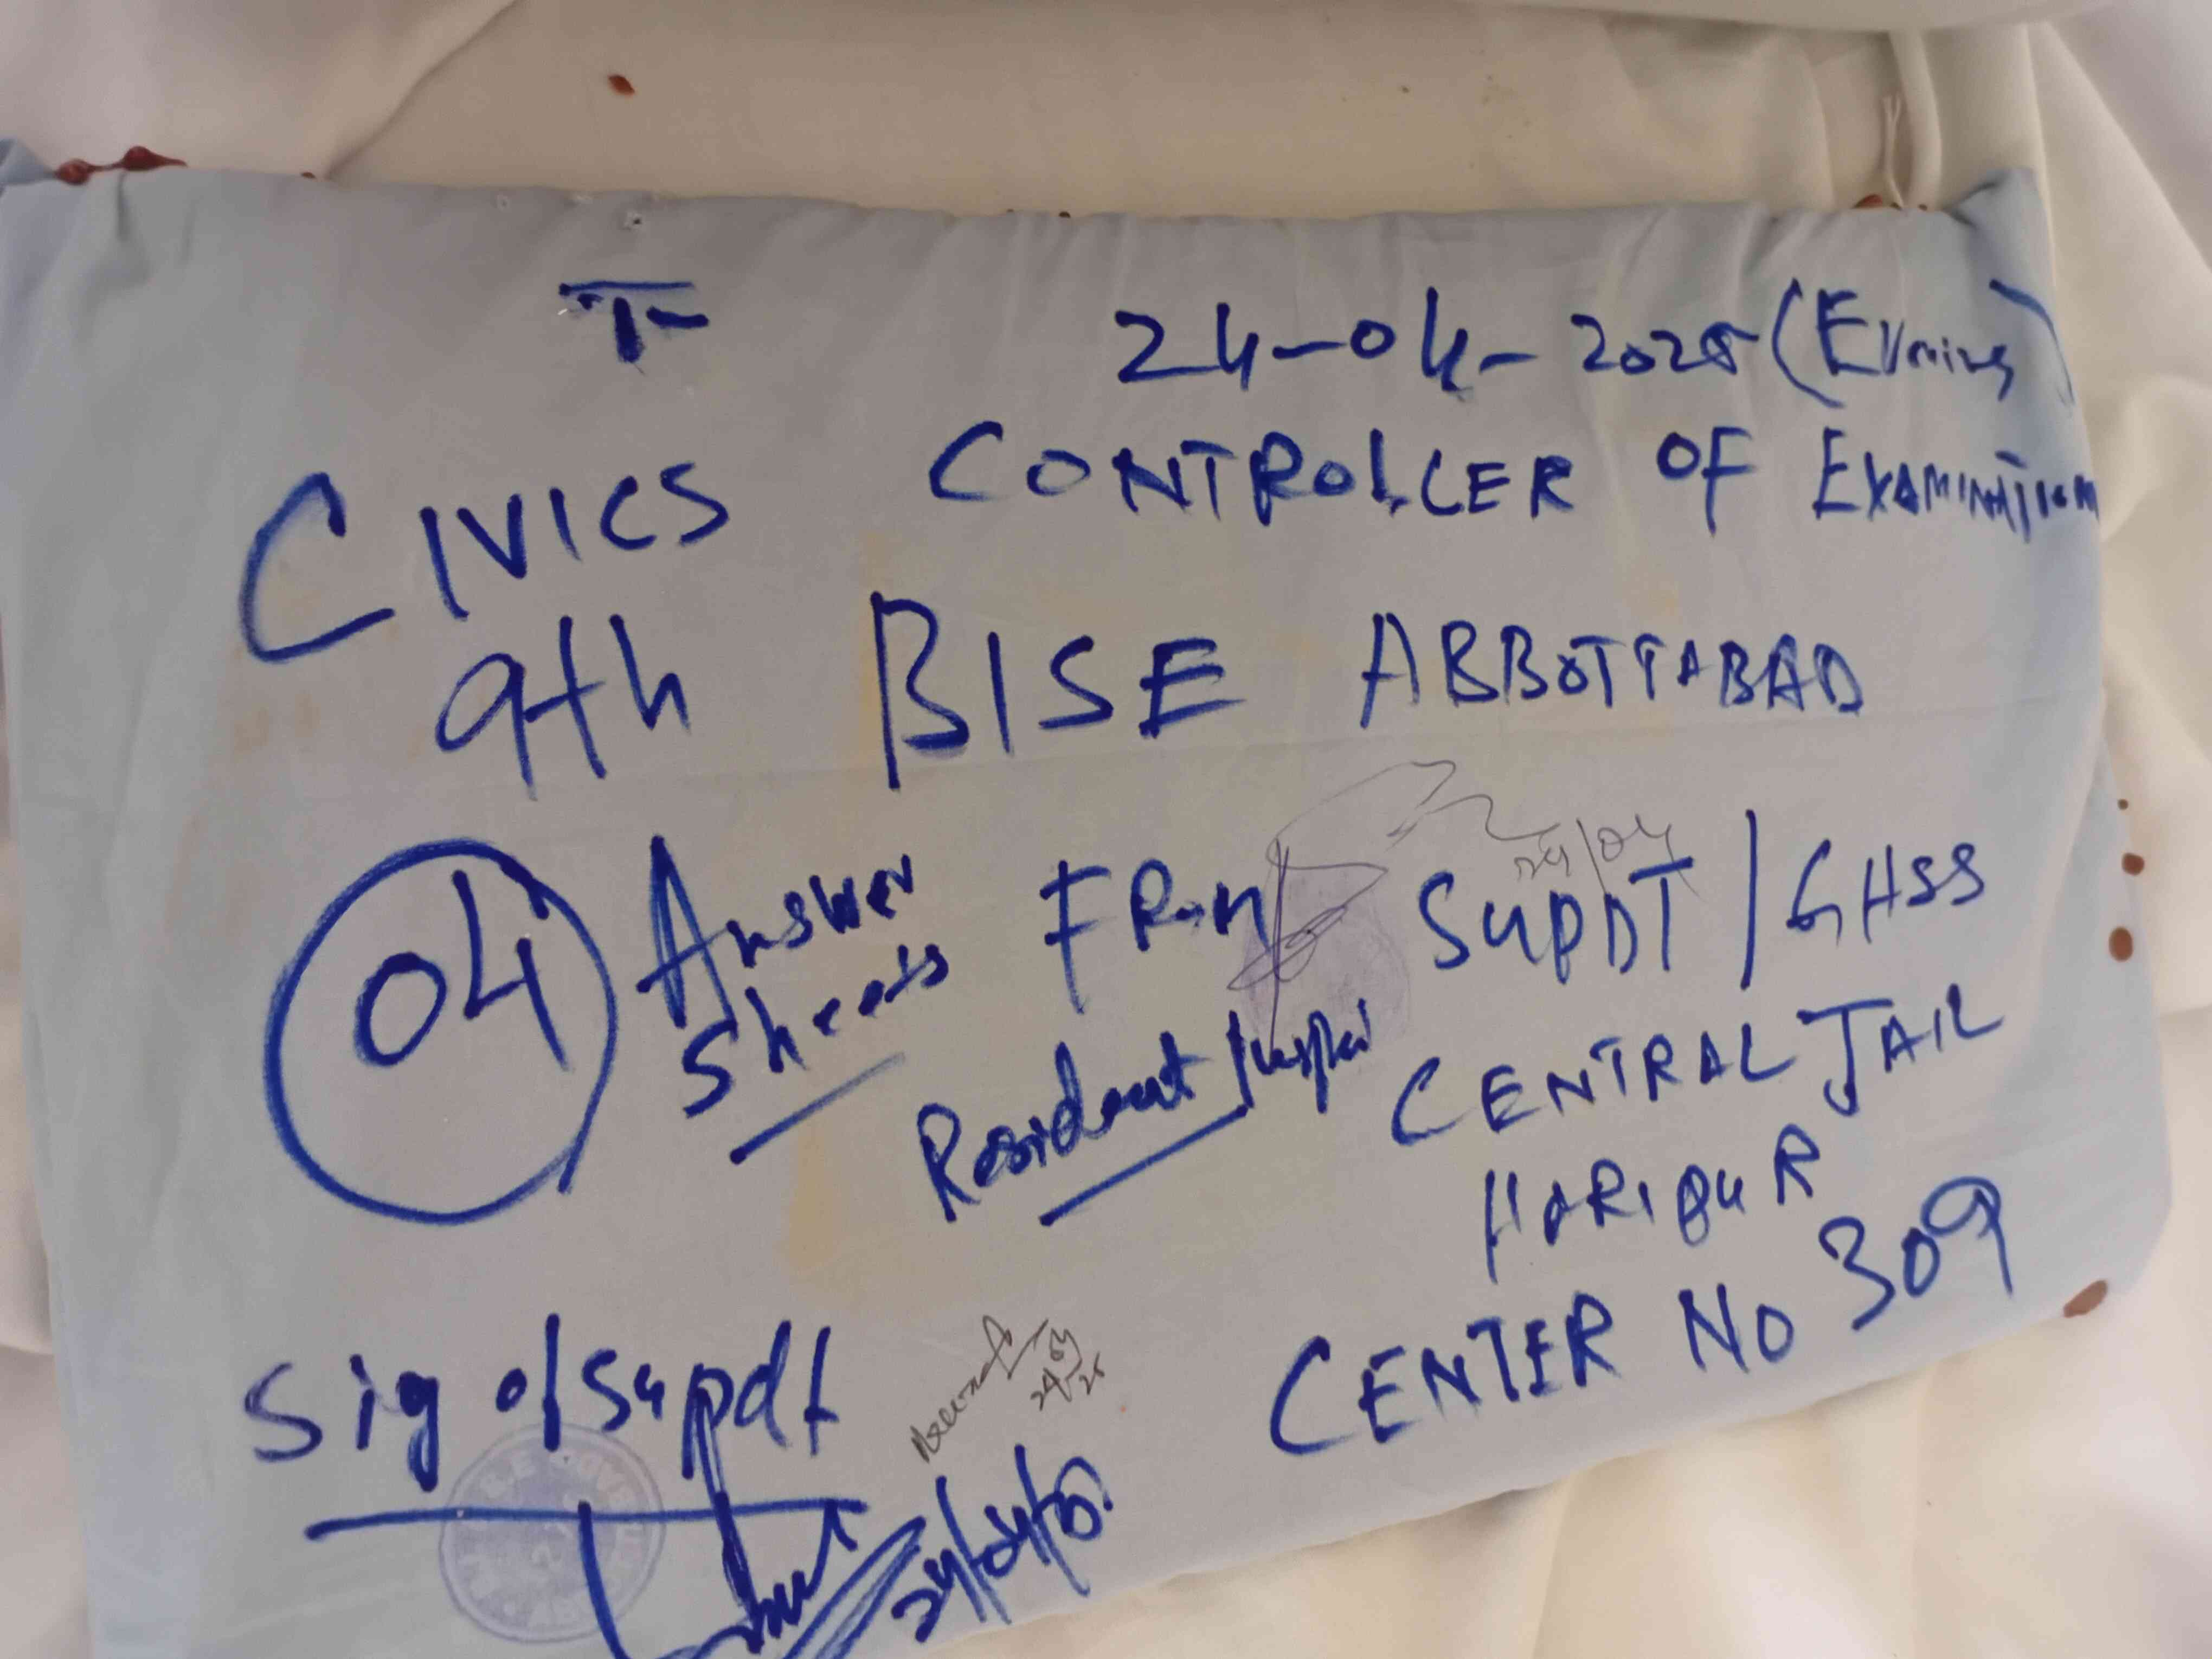 24-04-2025 (Evening)
CIVICS CONTROLLER OF EXAMINATION
9th BISE ABBOTTABAD
04 Answer Sheets FROM SUPDT / GHSS
24/04
Resident CENTRAL JAIL
HARIPUR
CENTER NO 309
Sig of Supdt
24/04/25
24/04/25